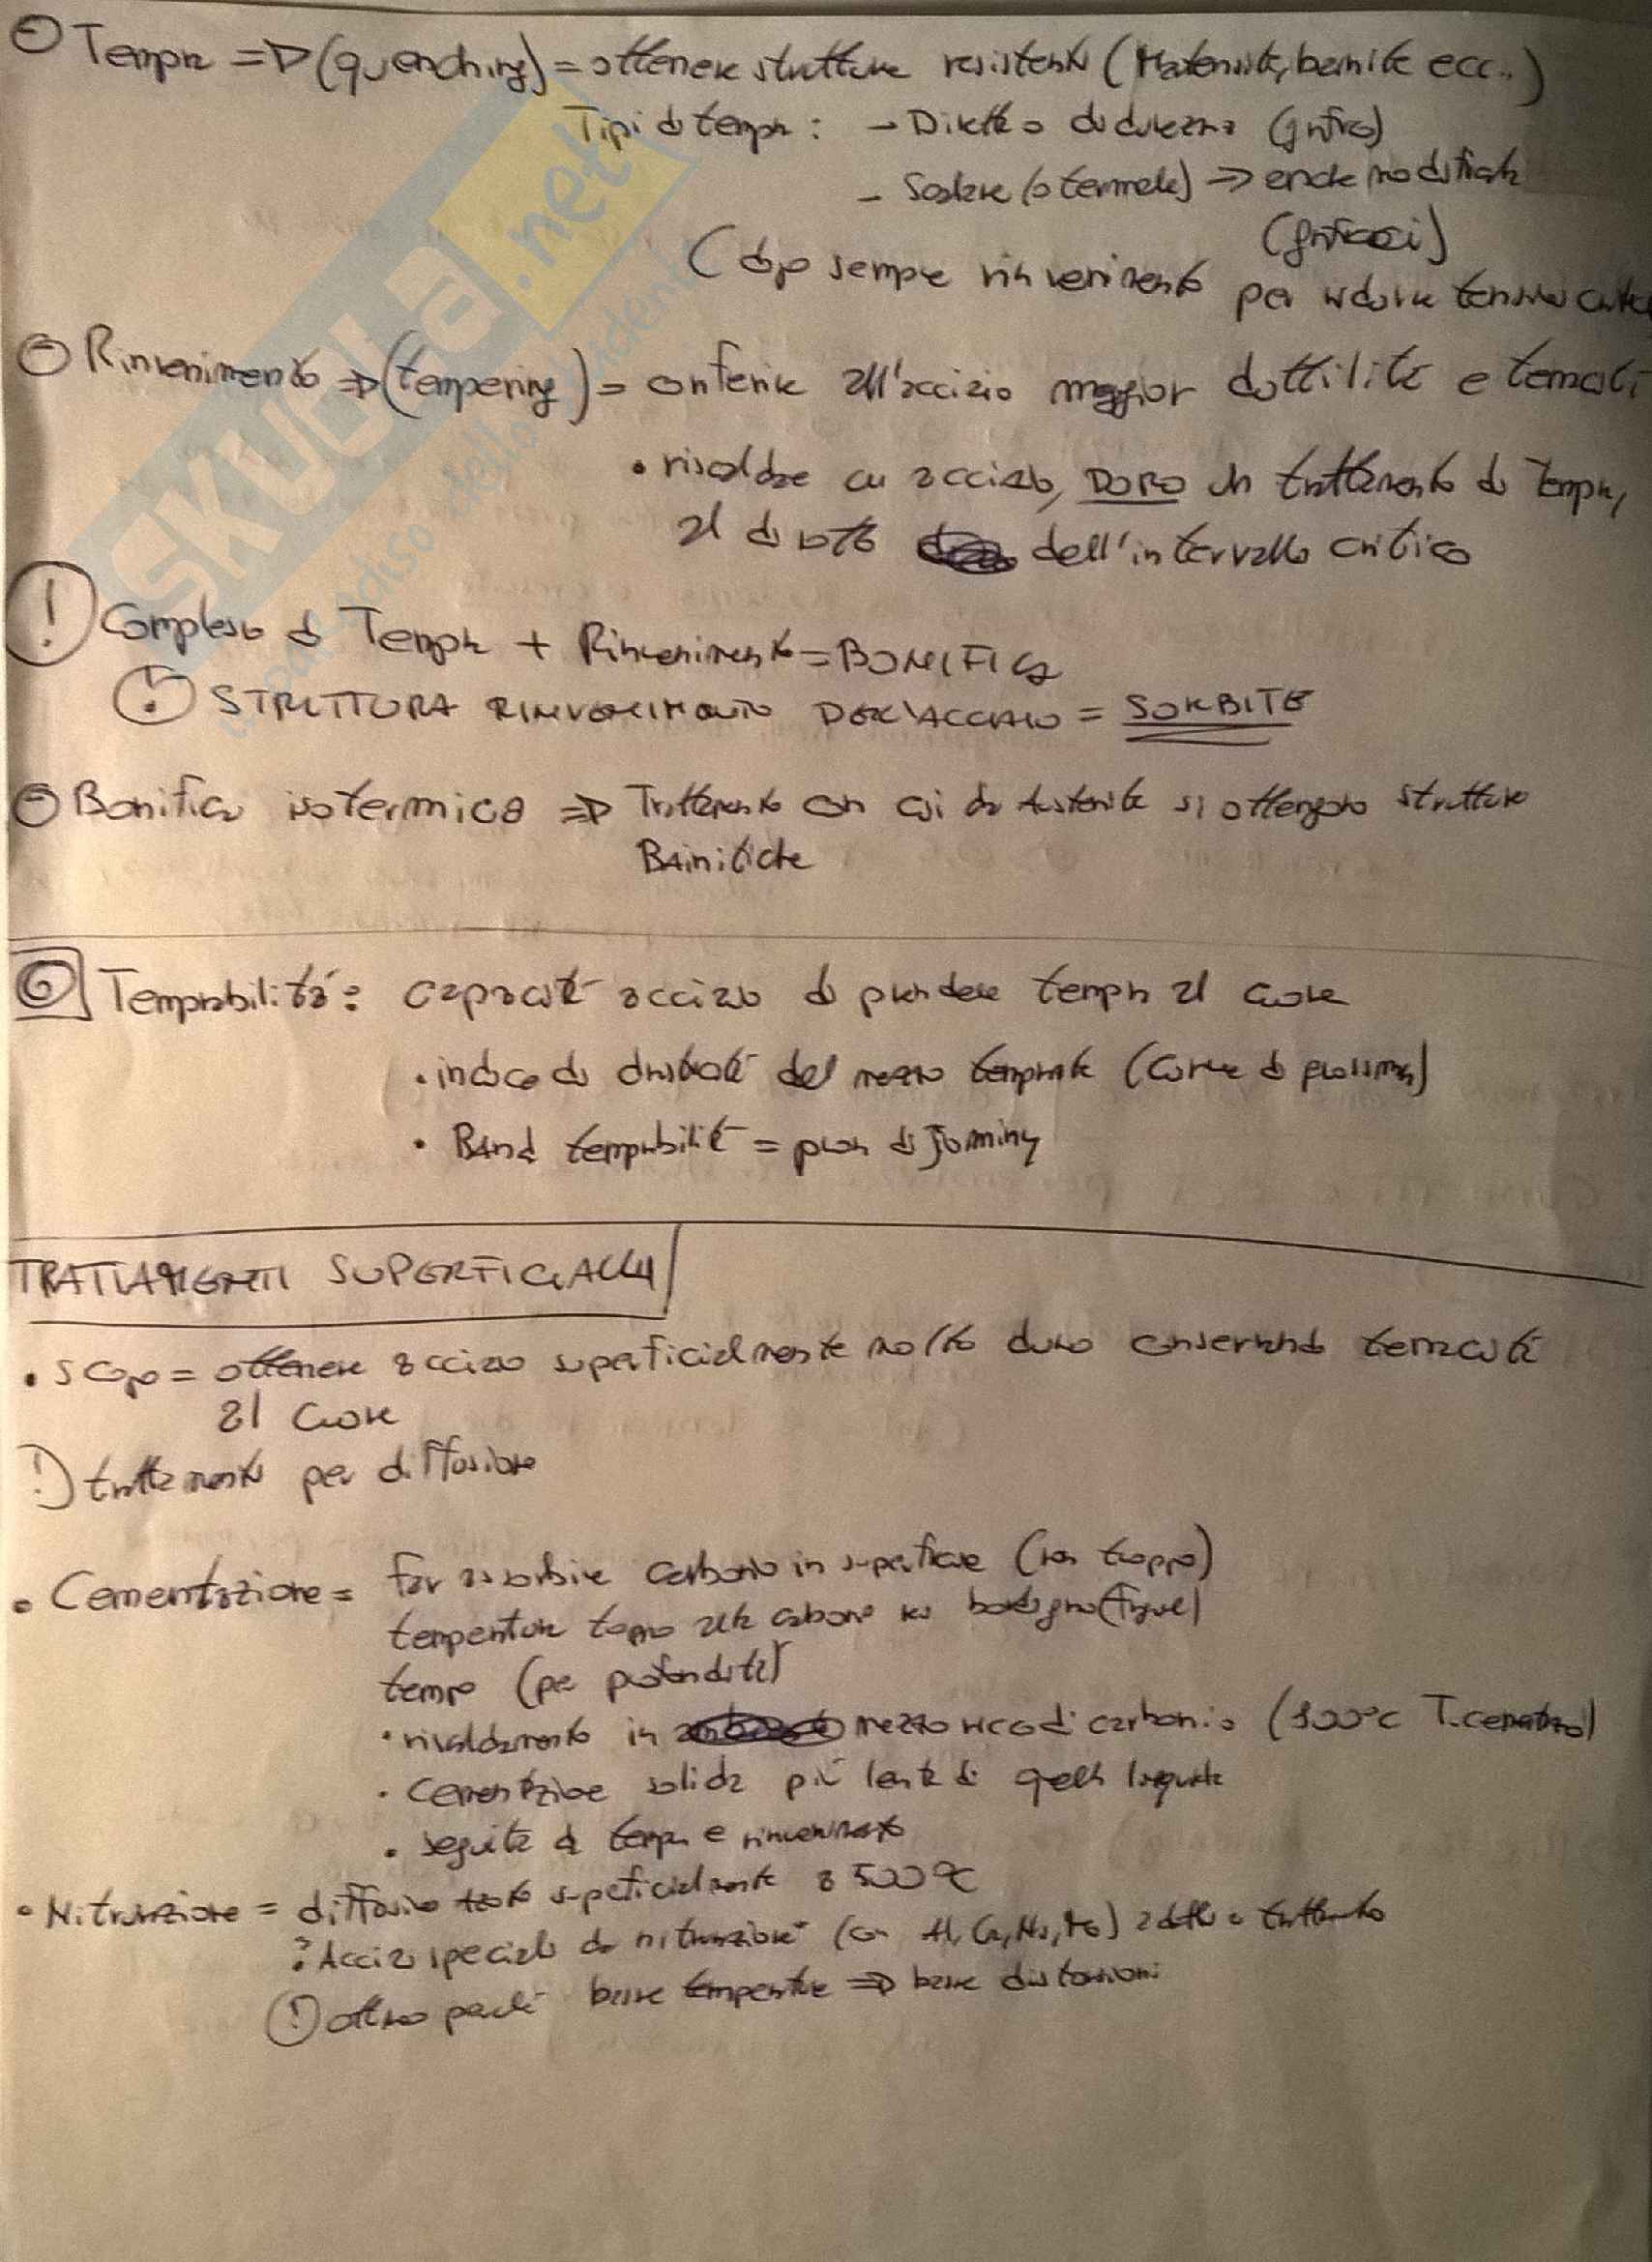 Tempra => (quenching) = ottenere strutture resistenti (Martensite, bainite ecc..)
Tipi di tempra: - Diretta o di durezza (grafico)
- Scalare (o termale) => anche modificata
(grafici)
(dopo sempre rinvenimento per ridurre tensioni
Rinvenimento => (tempering) = conferire all'acciaio maggior duttilità e tenacità
• riscaldare un acciaio, DOPO un trattamento di Tempra,
al di sotto dell'intervallo critico
! Complesso di Tempra + Rinvenimento = BONIFICA
! STRUTTURA RINVENIMENTO DELL'ACCIAIO = SORBITE
Bonifica isotermica => Trattamento con cui da Austenite si ottengono strutture
Bainitiche
6 Temprabilità: capacità acciaio di prendere tempra al cuore
• indice di drasticità del mezzo temprante (curve di
• Band temprabilità = prova di Jominy
TRATTAMENTI SUPERFICIALI
• Scopo = ottenere acciaio superficialmente molto duro conservando tenacità
al cuore
!) trattamento per diffusione
• Cementazione = far assorbire carbonio in superficie (non troppo)
temperatura troppo alta carbonio
tempo (per profondità)
• riscaldamento in mezzo ricco di carbonio
• Cementazione solida più lenta di quella liquida
• seguita da tempra e rinvenimento
• Nitrurazione = diffusione azoto superficialmente a 500°C
: Acciaio speciale da nitrurazione
! ottimo perché basse temperature => basse distorsioni
SKUOLA.net
il paradiso dello studente